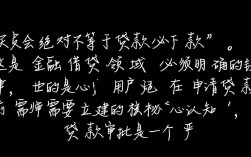 点会绝对不等于贷款必下款”。
是金融借贷领域必须明确的
的是心用户把在申请贷款
需师需要立建的独秘“心认知‘,
贷款审批是一个严